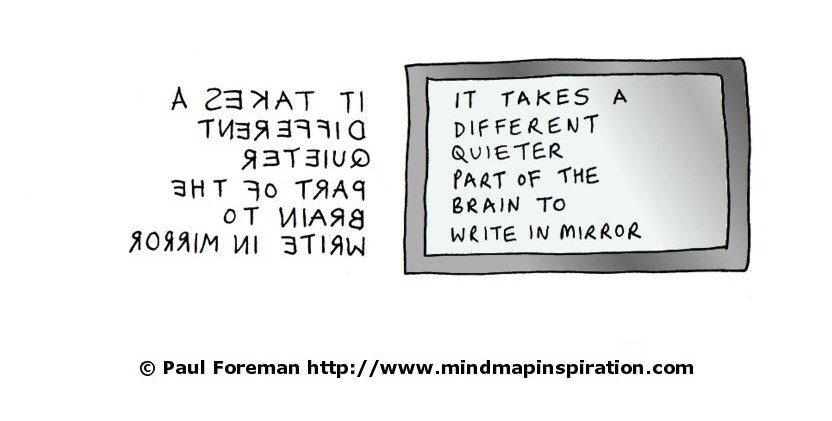 IT TAKES A
DIFFERENT
QUIETER
PART OF THE
BRAIN TO
WRITE IN MIRROR
IT TAKES A
DIFFERENT
QUIETER
PART OF THE
BRAIN TO
WRITE IN MIRROR
© Paul Foreman http://www.mindmapinspiration.com